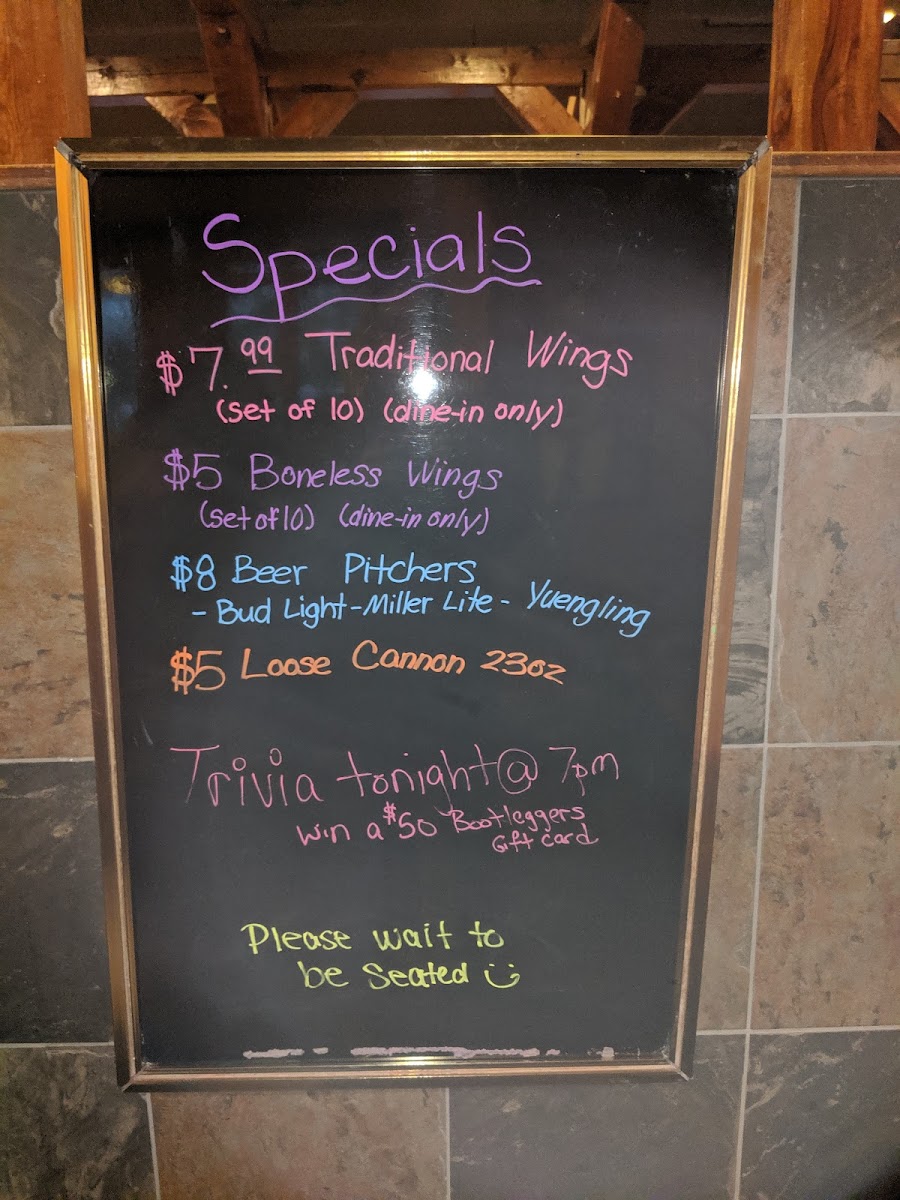 Specials
$7.99 Traditional Wings
(set of 10) (dine-in only)
$5 Boneless Wings
(set of 10) (dine-in only)
$8 Beer Pitchers
- Bud Light - Miller Lite - Yuengling
$5 Loose Cannon 23oz
Trivia tonight @ 7pm
win a $50 Bootleggers
Gift card
Please wait to
be seated :)